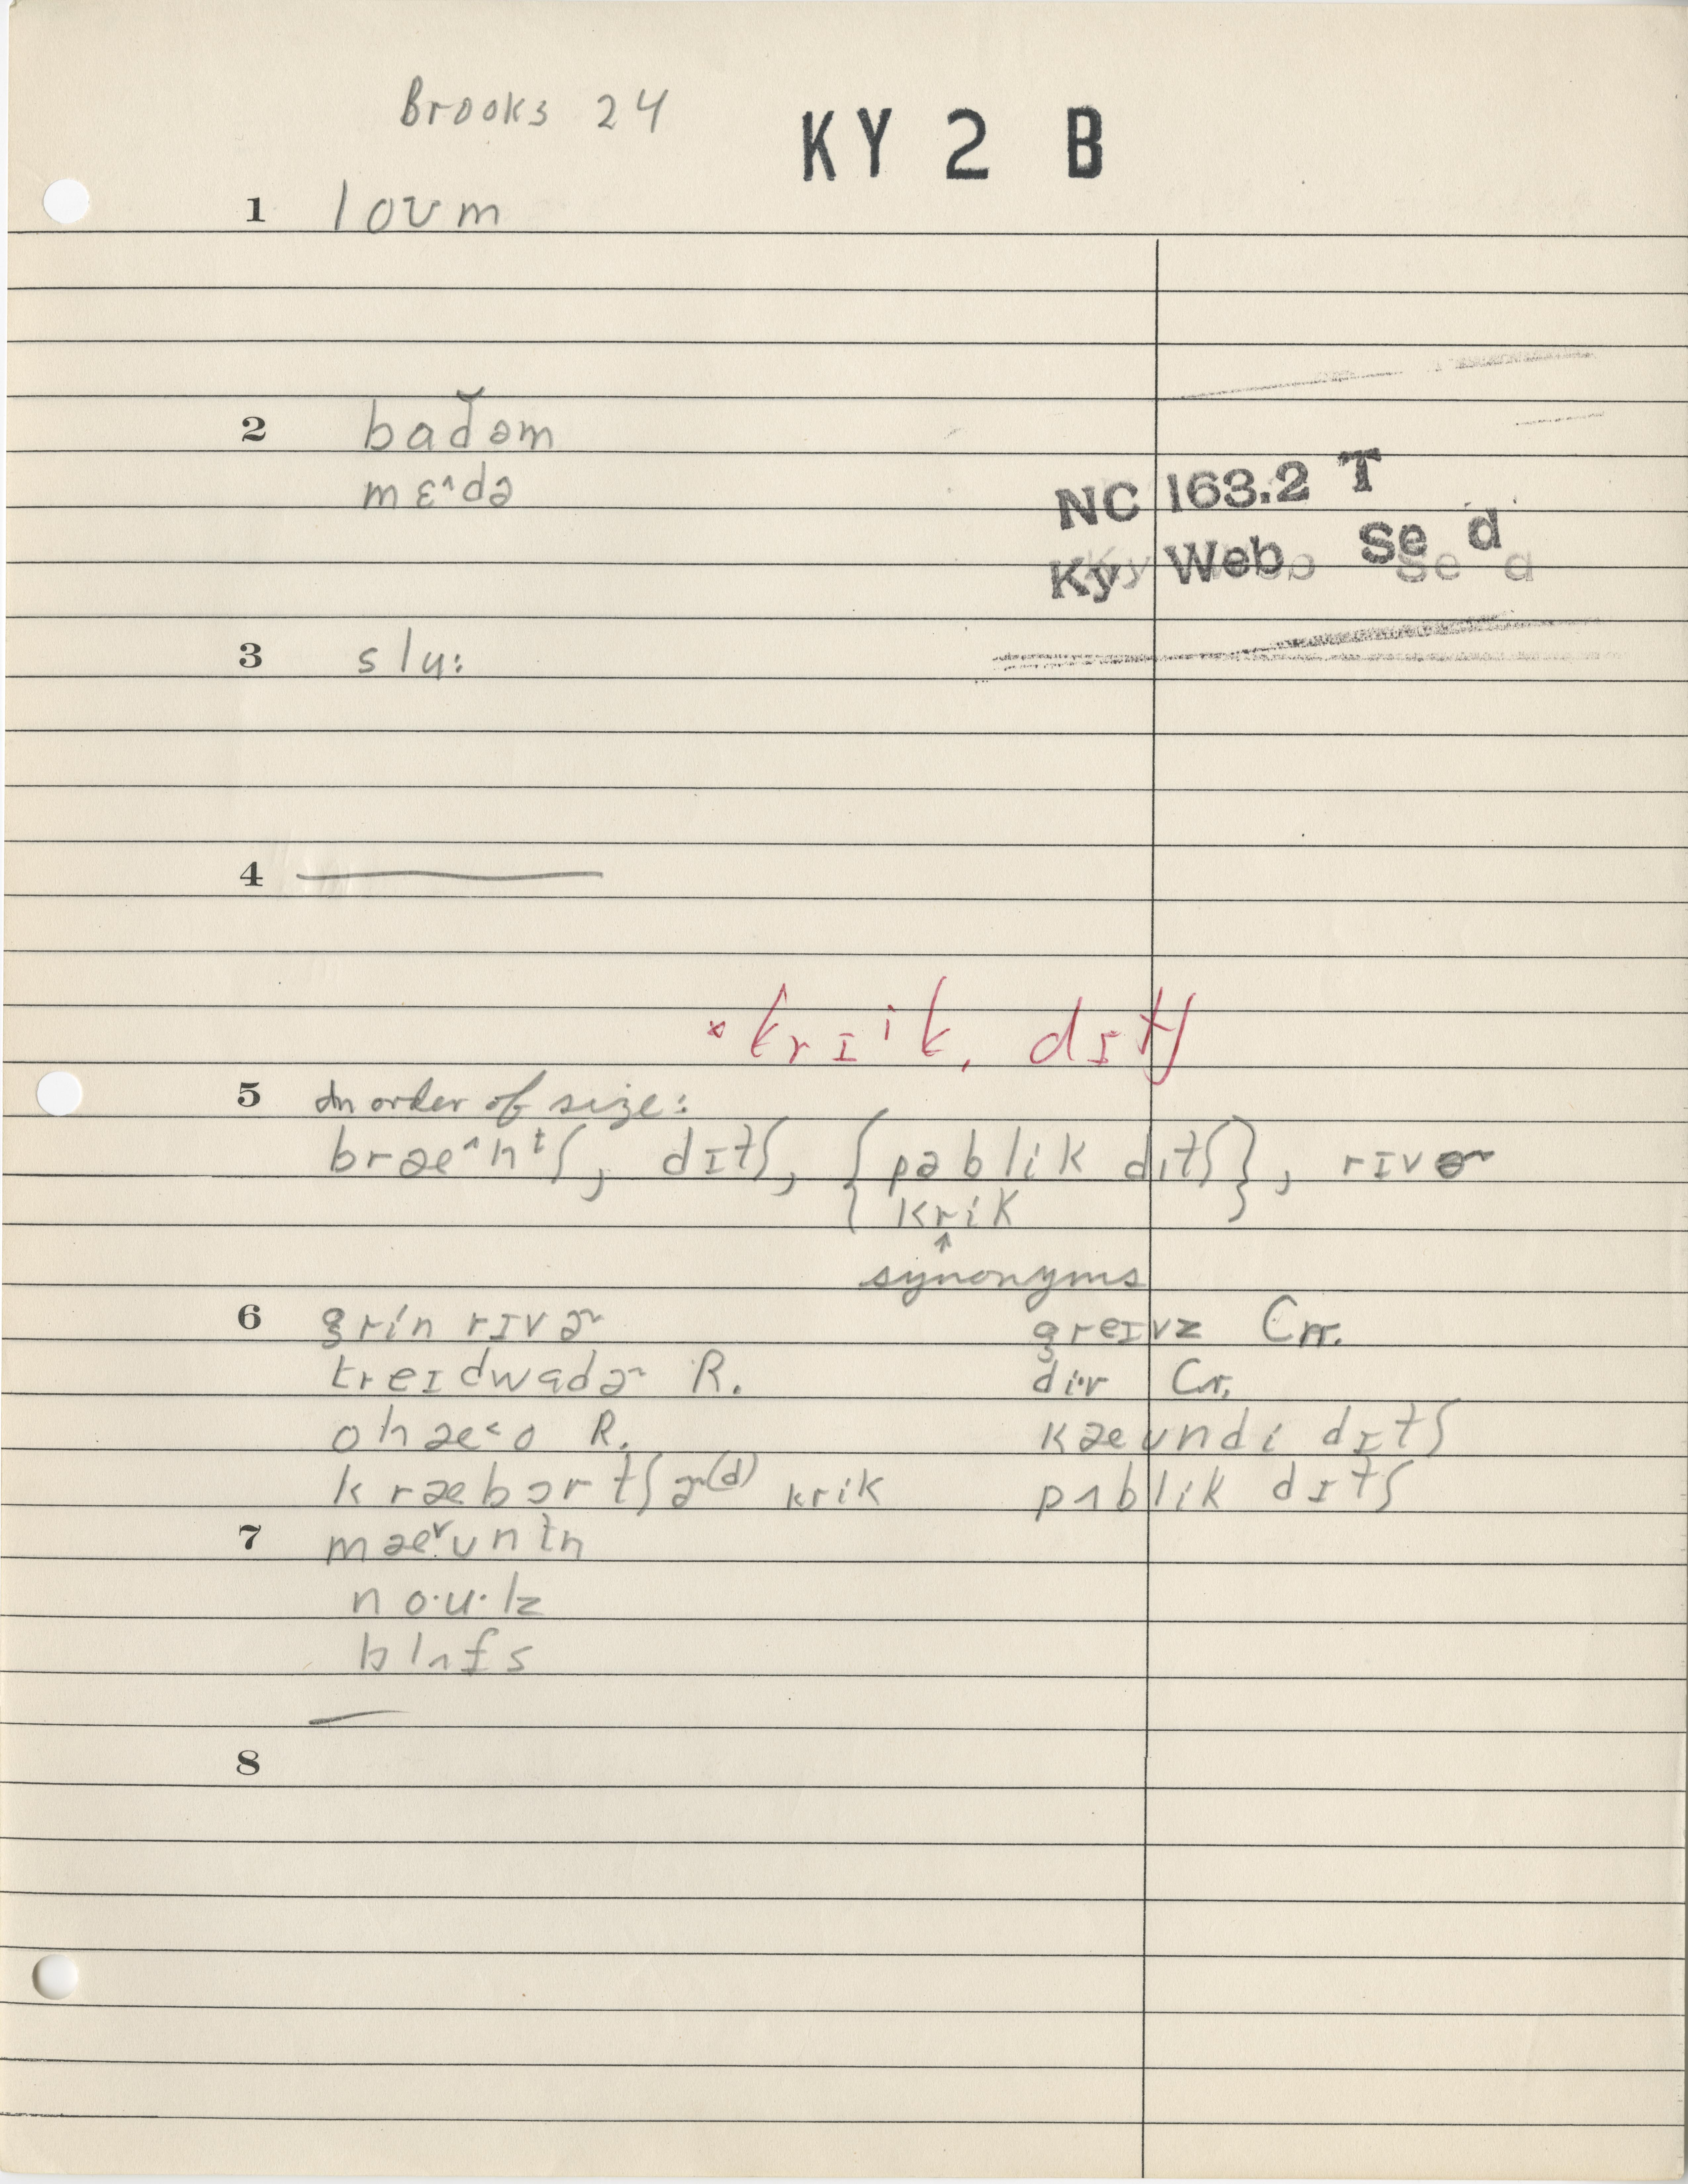 Brooks 24
KY 2 B
1 loʊm
2 bad̆əm
mɛ^də
NC 163.2 T
Ky Web Se d
3 slu:
4
× krɪik, dɪtʃ
5 In order of size:
bræ^nᵗʃ, dɪtʃ, { pəblik dɪtʃ }, rɪvɚ
krik
↑
synonyms
6 grin rɪvɚ greɪvz Cr.
treɪdwadɚ R. di·r Cr.
ohæ<o R. kæʊndi dɪtʃ
kræbɔrtʃɚ(d) krik pʌblik dɪtʃ
7 mæ˅ʊntn
no·u·lz
blʌfs
8